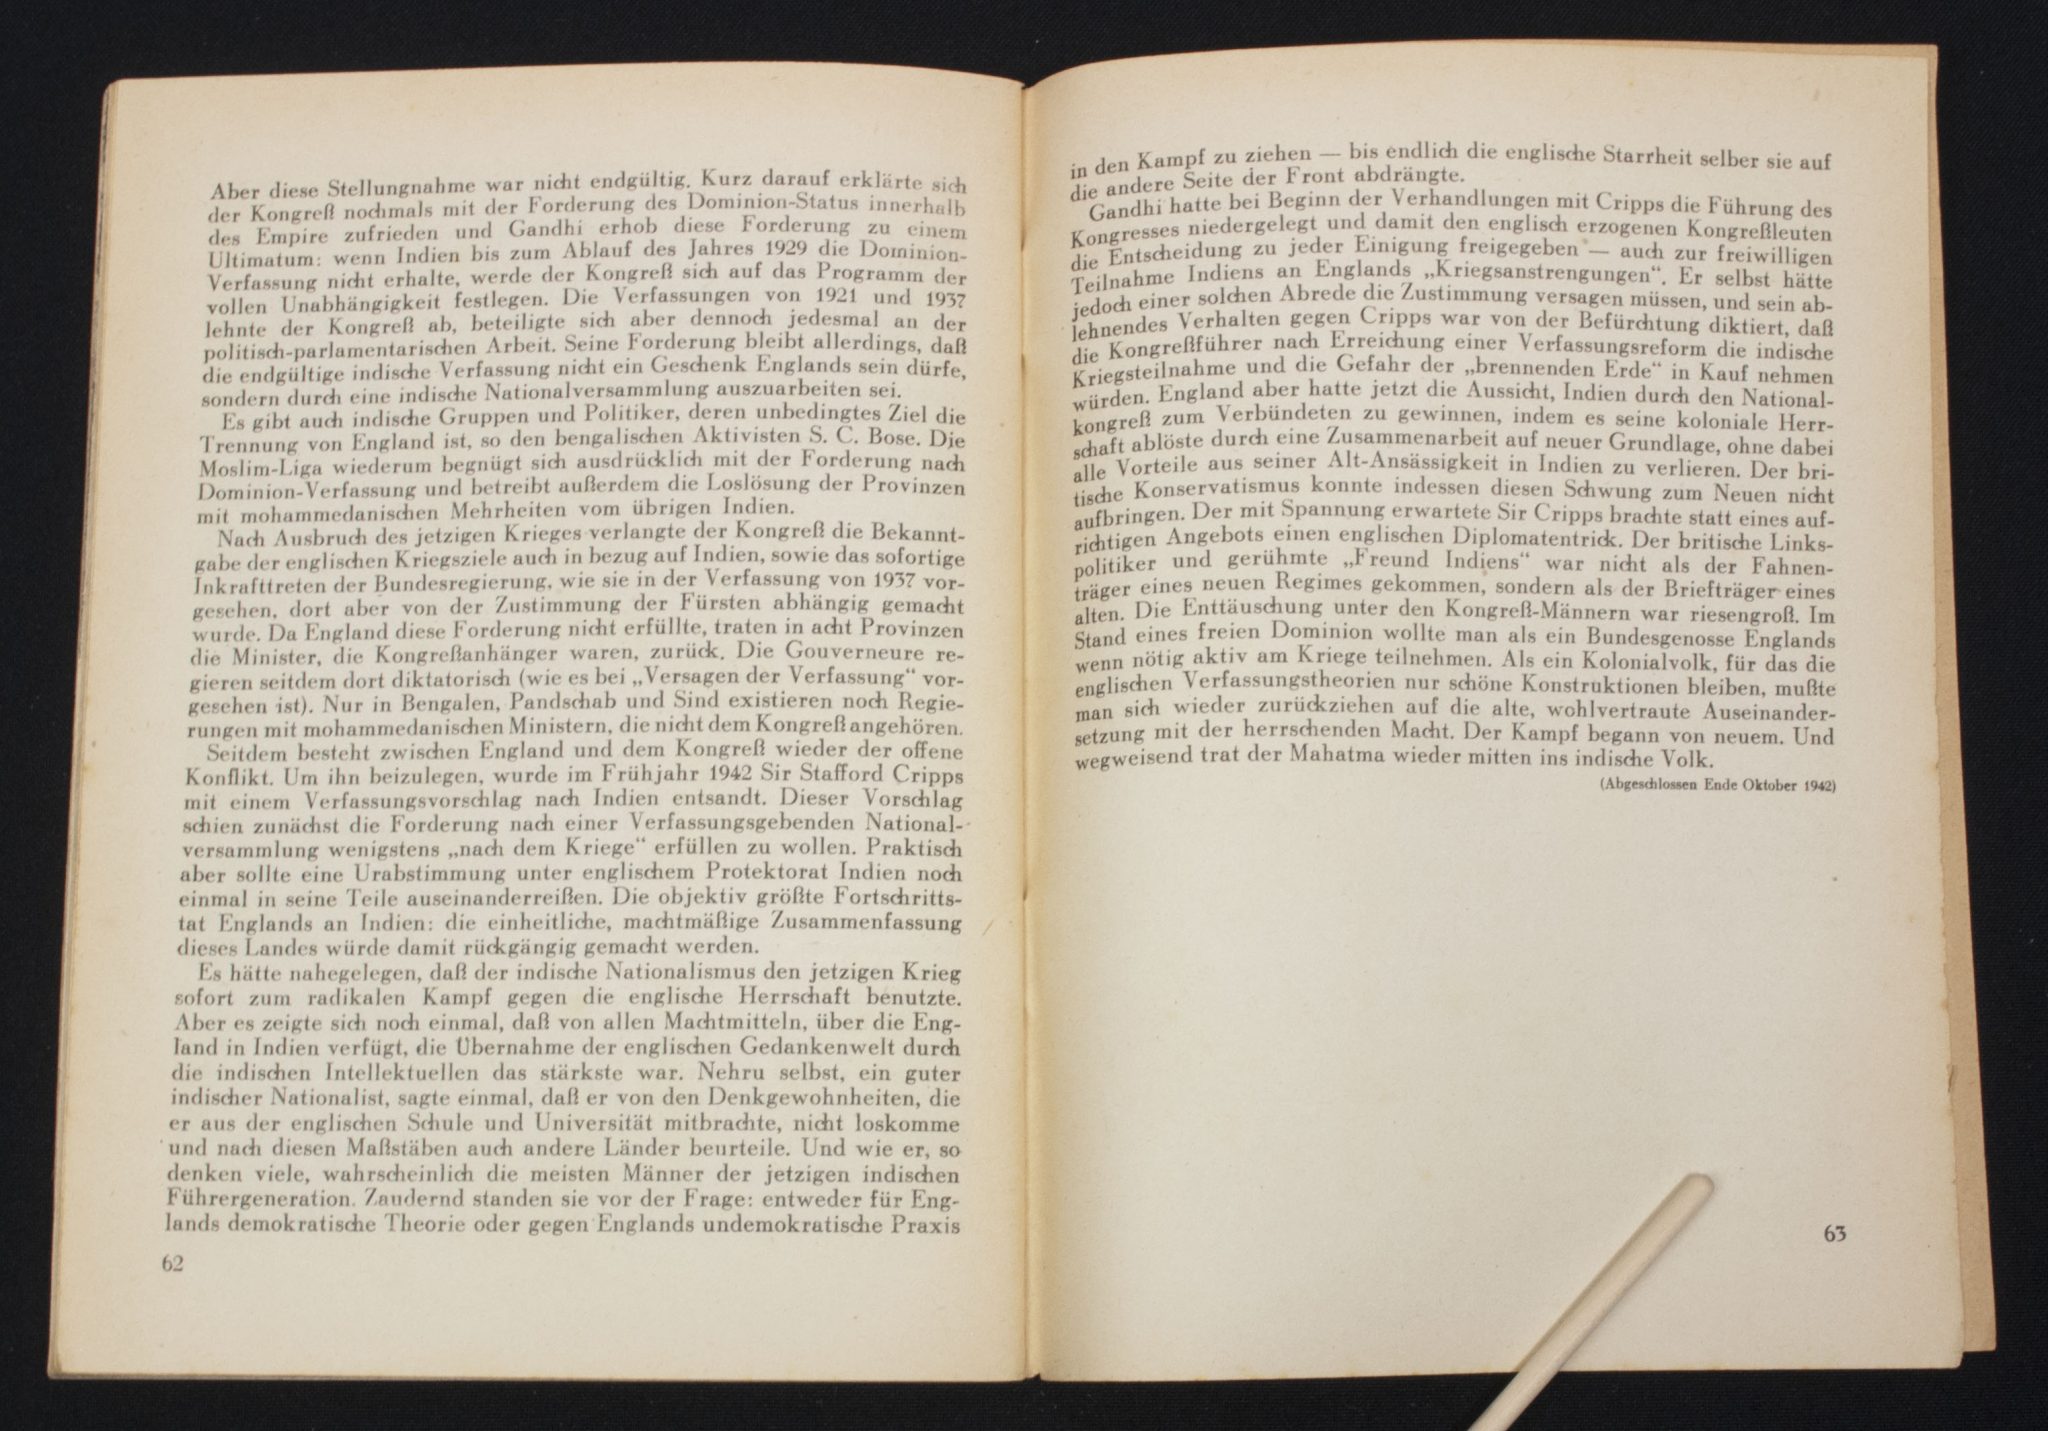 Aber diese Stellungnahme war nicht endgültig. Kurz darauf erklärte sich
der Kongreß nochmals mit der Forderung des Dominion-Status innerhalb
des Empire zufrieden und Gandhi erhob diese Forderung zu einem
Ultimatum: wenn Indien bis zum Ablauf des Jahres 1929 die Dominion-
Verfassung nicht erhalte, werde der Kongreß sich auf das Programm der
vollen Unabhängigkeit festlegen. Die Verfassungen von 1921 und 1937
lehnte der Kongreß ab, beteiligte sich aber dennoch jedesmal an der
politisch-parlamentarischen Arbeit. Seine Forderung bleibt allerdings, daß
die endgültige indische Verfassung nicht ein Geschenk Englands sein dürfe,
sondern durch eine indische Nationalversammlung auszuarbeiten sei.
Es gibt auch indische Gruppen und Politiker, deren unbedingtes Ziel die
Trennung von England ist, so den bengalischen Aktivisten S. C. Bose. Die
Moslim-Liga wiederum begnügt sich ausdrücklich mit der Forderung nach
Dominion-Verfassung und betreibt außerdem die Loslösung der Provinzen
mit mohammedanischen Mehrheiten vom übrigen Indien.
Nach Ausbruch des jetzigen Krieges verlangte der Kongreß die Bekannt-
gabe der englischen Kriegsziele auch in bezug auf Indien, sowie das sofortige
Inkrafttreten der Bundesregierung, wie sie in der Verfassung von 1937 vor-
gesehen, dort aber von der Zustimmung der Fürsten abhängig gemacht
wurde. Da England diese Forderung nicht erfüllte, traten in acht Provinzen
die Minister, die Kongreßanhänger waren, zurück. Die Gouverneure re-
gieren seitdem dort diktatorisch (wie es bei „Versagen der Verfassung“ vor-
gesehen ist). Nur in Bengalen, Pandschab und Sind existieren noch Regie-
rungen mit mohammedanischen Ministern, die nicht dem Kongreß angehören.
Seitdem besteht zwischen England und dem Kongreß wieder der offene
Konflikt. Um ihn beizulegen, wurde im Frühjahr 1942 Sir Stafford Cripps
mit einem Verfassungsvorschlag nach Indien entsandt. Dieser Vorschlag
schien zunächst die Forderung nach einer Verfassungsgebenden National-
versammlung wenigstens „nach dem Kriege“ erfüllen zu wollen. Praktisch
aber sollte eine Urabstimmung unter englischem Protektorat Indien noch
einmal in seine Teile auseinanderreißen. Die objektiv größte Fortschritts-
tat Englands an Indien: die einheitliche, machtmäßige Zusammenfassung
dieses Landes würde damit rückgängig gemacht werden.
Es hätte nahegelegen, daß der indische Nationalismus den jetzigen Krieg
sofort zum radikalen Kampf gegen die englische Herrschaft benutzte.
Aber es zeigte sich noch einmal, daß von allen Machtmitteln, über die Eng-
land in Indien verfügt, die Übernahme der englischen Gedankenwelt durch
die indischen Intellektuellen das stärkste war. Nehru selbst, ein guter
indischer Nationalist, sagte einmal, daß er von den Denkgewohnheiten, die
er aus der englischen Schule und Universität mitbrachte, nicht loskomme
und nach diesen Maßstäben auch andere Länder beurteile. Und wie er, so
denken viele, wahrscheinlich die meisten Männer der jetzigen indischen
Führergeneration. Zaudernd standen sie vor der Frage: entweder für Eng-
lands demokratische Theorie oder gegen Englands undemokratische Praxis
62
in den Kampf zu ziehen — bis endlich die englische Starrheit selber sie auf
die andere Seite der Front abdrängte.
Gandhi hatte bei Beginn der Verhandlungen mit Cripps die Führung des
Kongresses niedergelegt und damit den englisch erzogenen Kongreßleuten
die Entscheidung zu jeder Einigung freigegeben — auch zur freiwilligen
Teilnahme Indiens an Englands „Kriegsanstrengungen“. Er selbst hätte
jedoch einer solchen Abrede die Zustimmung versagen müssen, und sein ab-
lehnendes Verhalten gegen Cripps war von der Befürchtung diktiert, daß
die Kongreßführer nach Erreichung einer Verfassungsreform die indische
Kriegsteilnahme und die Gefahr der „brennenden Erde“ in Kauf nehmen
würden. England aber hatte jetzt die Aussicht, Indien durch den National-
kongreß zum Verbündeten zu gewinnen, indem es seine koloniale Herr-
schaft ablöste durch eine Zusammenarbeit auf neuer Grundlage, ohne dabei
alle Vorteile aus seiner Alt-Ansässigkeit in Indien zu verlieren. Der bri-
tische Konservatismus konnte indessen diesen Schwung zum Neuen nicht
aufbringen. Der mit Spannung erwartete Sir Cripps brachte statt eines auf-
richtigen Angebots einen englischen Diplomatentrick. Der britische Links-
politiker und gerühmte „Freund Indiens“ war nicht als der Fahnen-
träger eines neuen Regimes gekommen, sondern als der Briefträger eines
alten. Die Enttäuschung unter den Kongreß-Männern war riesengroß. Im
Stand eines freien Dominion wollte man als ein Bundesgenosse Englands
wenn nötig aktiv am Kriege teilnehmen. Als ein Kolonialvolk, für das die
englischen Verfassungstheorien nur schöne Konstruktionen bleiben, mußte
man sich wieder zurückziehen auf die alte, wohlvertraute Auseinander-
setzung mit der herrschenden Macht. Der Kampf begann von neuem. Und
wegweisend trat der Mahatma wieder mitten ins indische Volk.
(Abgeschlossen Ende Oktober 1942)
63